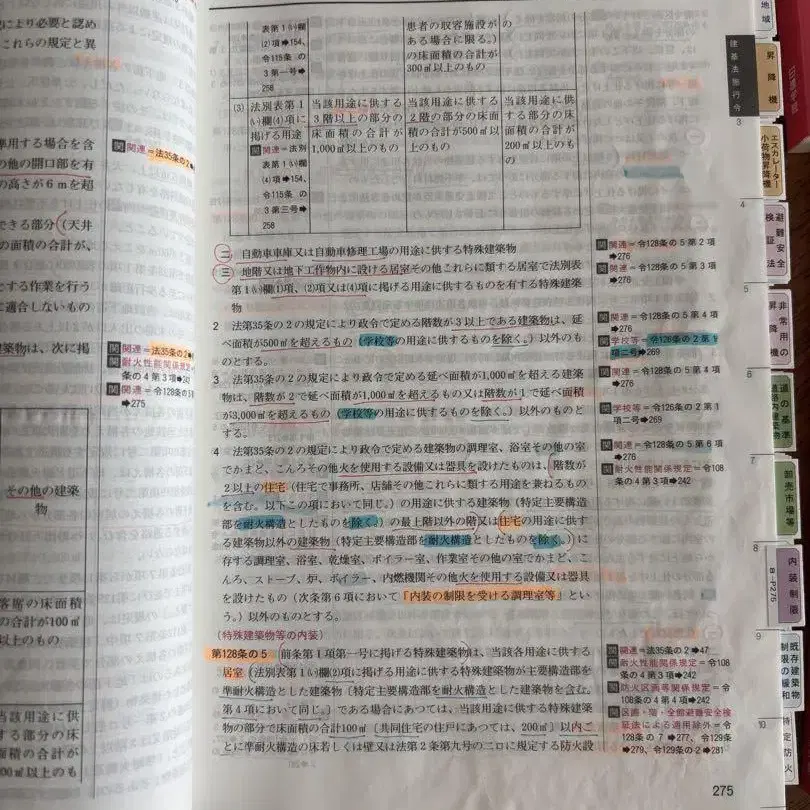 により必要と認め
これらの規定と異
準用する場合を含
の他の開口部を有
の高さが6mを超
できる部分(天井
の面積の合計が、
する作業を行う
に適合しないもの
建築物は、次に掲
関 関連=法35条の2
関 関連=法35条の2
関 耐火性能関係規定
条の4第3項
関 関連=令128条の5
➡275
その他の建築
物
客席の床面積
の合計が100㎡
以上のもの
当該用途に供
する部分の床
面積の合計が
以上のも
表第1(い)欄
(2)項➡154、
令115条の
3第一号➡
258
患者の収容施設が
ある場合に限る。)
の床面積の合計が
300㎡以上のもの
の
(3)
法別表第1
(い)欄(4)項に
掲げる用途
関 関連=法別
表第1(い)欄
(4)項➡154、
令115条の
3第三号➡
258
当該用途に供する
3階以上の部分の
床面積の合計が
1,000㎡以上のもの
当該用途に供する
2階の部分の床面
積の合計が500㎡以
上のもの
当該用途に供
する部分の床
面積の合計が
200㎡以上のも
の
二 自動車車庫又は自動車修理工場の用途に供する特殊建築物
三 地階又は地下工作物内に設ける居室その他これらに類する居室で法別表
第1(い)欄(1)項、(2)項又は(4)項に掲げる用途に供するものを有する特殊建築
物
2 法第35条の2の規定により政令で定める階数が3以上である建築物は、延
べ面積が500㎡を超えるもの(学校等の用途に供するものを除く。)以外のも
のとする。
3 法第35条の2の規定により政令で定める延べ面積が1,000㎡を超える建築
物は、階数が2で延べ面積が1,000㎡を超えるもの又は階数が1で延べ面積
が3,000㎡を超えるもの(学校等の用途に供するものを除く。)以外のものと
する。
4 法第35条の2の規定により政令で定める建築物の調理室、浴室その他の室
でかまど、こんろその他火を使用する設備又は器具を設けたものは、階数が
2以上の住宅(住宅で事務所、店舗その他これらに類する用途を兼ねるもの
を含む。以下この項において同じ。)の用途に供する建築物(特定主要構造
部を耐火構造としたものを除く。)の最上階以外の階又は住宅の用途に供す
る建築物以外の建築物(特定主要構造部を耐火構造としたものを除く。)に
存する調理室、浴室、乾燥室、ボイラー室、作業室その他の室でかまど、こ
んろ、ストーブ、炉、ボイラー、内燃機関その他火を使用する設備又は器具
を設けたもの(次条第6項において「内装の制限を受ける調理室等」とい
う。)以外のものとする。
(特殊建築物等の内装)
第128条の5 前条第1項第一号に掲げる特殊建築物は、当該各用途に供する
居室(法別表第1(い)欄(2)項に掲げる用途に供する特殊建築物が主要構造部を
準耐火構造とした建築物(特定主要構造部を耐火構造とした建築物を含む。
第4項において同じ。)である場合にあつては、当該用途に供する特殊建築
物の部分で床面積の合計100㎡(共同住宅の住戸にあつては、200㎡)以内ご
とに準耐火構造の床若しくは壁又は法第2条第九号の二ロに規定する防火設
関 関連=令128条の5第2項
➡276
関 関連=令128条の5第3項
➡276
関 関連=令128条の5第4項
➡276
関 学校等=令126条の2第1
項二号➡269
関 関連=令128条の5第4項
➡276
関 学校等=令126条の2第1
項二号➡269
関 関連=令128条の5第6項
➡276
関 耐火性能関係規定=令108
条の4第3項➡242
関 関連=法35条の2➡47
関 耐火性能関係規定=令108
条の4第3項➡242
関 防火区画等関係規定=令
108条の4第4項➡242
関 区画・階・全館避難安全検
証法による適用除外=令
128条の7➡277、令129条
➡279、令129条の2➡281
275
建基法施行令
地域
昇降機
3
エスカレーター
小荷物昇降機
4
避難安全
検証法
5
非常用の
昇降機
6
道の基準
7
卸売市場等
8
内装制限
B-P275
9
既存建築物
制限の緩和
10
特定防火